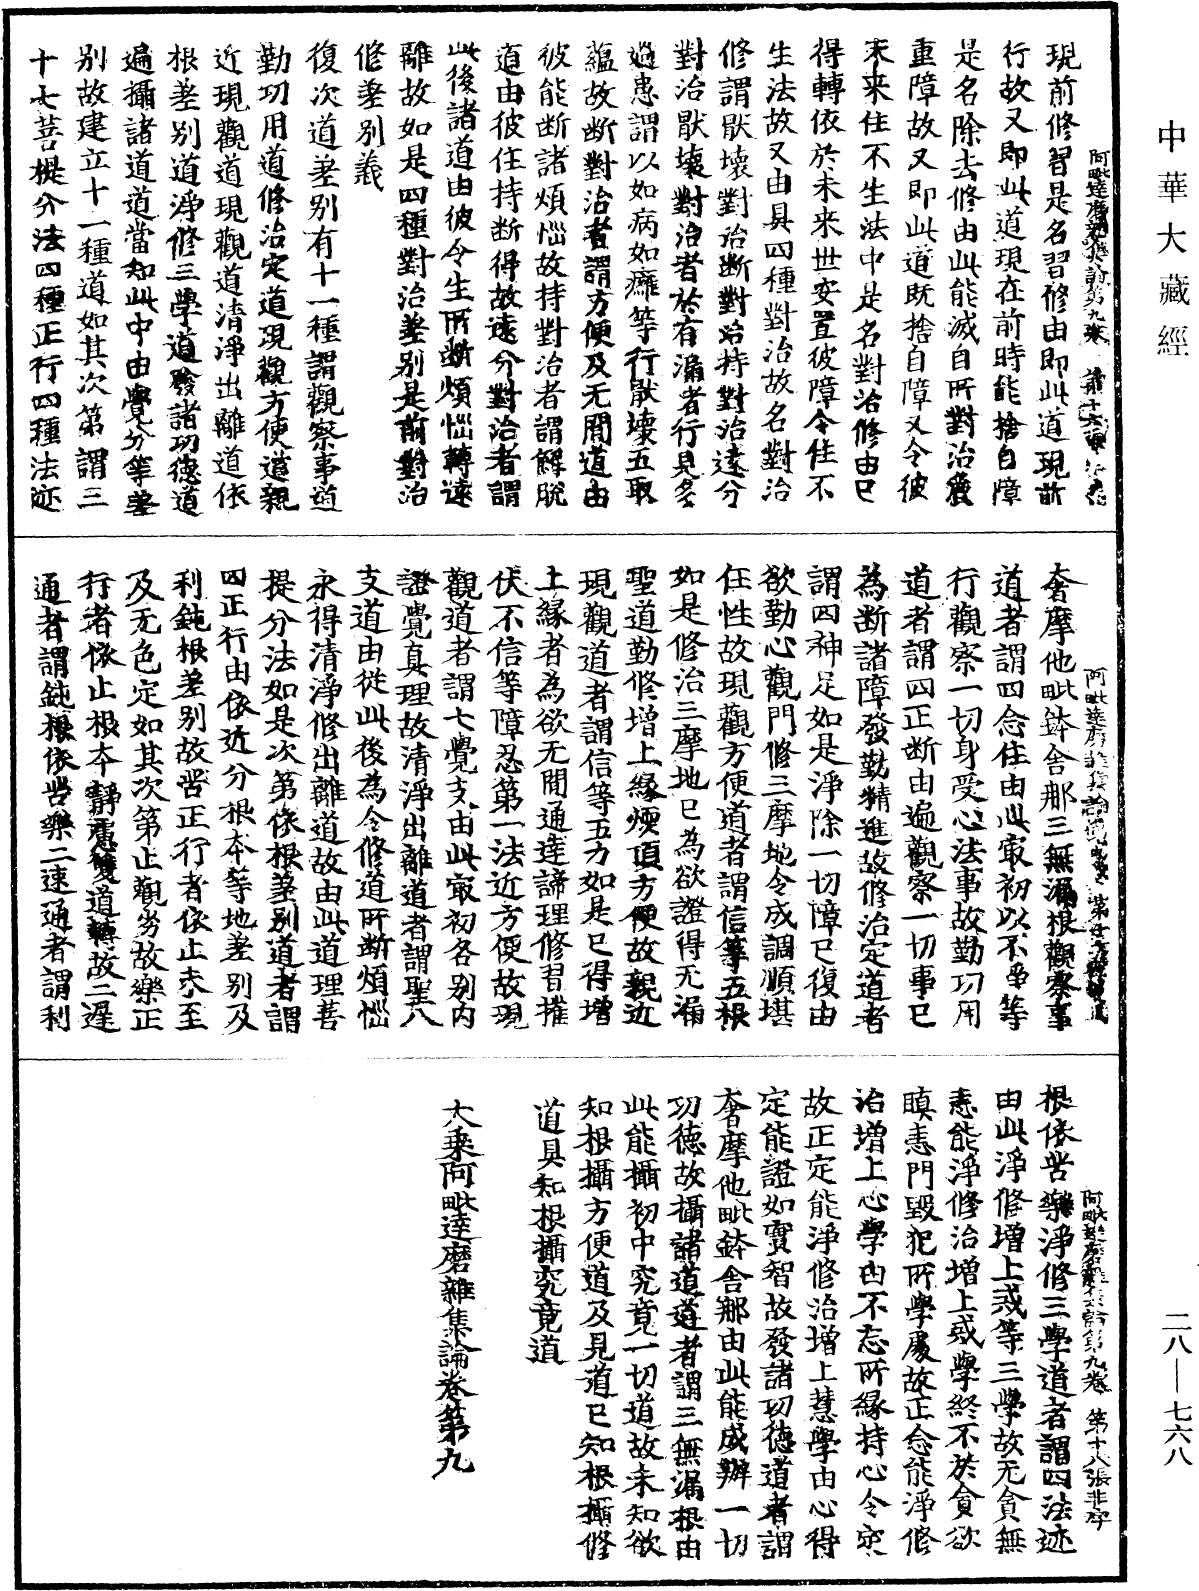 中華大藏經
現前修習是名習修由即此道現前
行故又即此道現在前時能捨自障
是名除去修由此能滅自所對治麁
重障故又即此道既捨自障又令彼
未来住不生法中是名對治修由已
得轉依於未来世安置彼障令住不
生法故又由具四種對治故名對治
修謂猒壞對治斷對治持對治遠分
對治猒壞對治者於有漏者行見多
過患謂以如病如癰等行猒壞五取
蘊故斷對治者謂方便及无間道由
彼能斷諸煩惱故持對治者謂解脫
道由彼任持斷得故遠分對治者謂
此後諸道由彼令生所斷煩惱轉遠
離故如是四種對治差別是前對治
修差別義
復次道差別有十一種謂觀察事道
勤功用道修治定道現觀方便道親
近現觀道現觀道清淨出離道依
根差別道淨修三學道發諸功德道
遍攝諸道道當知此中由覺分等差
別故建立十一種道如其次第謂三
十七菩提分法四種正行四種法迹
奢摩他毗鉢舍那三無漏根觀察事
道者謂四念住由此㝡初以不淨等
行觀察一切身受心法事故勤功用
道者謂四正斷由遍觀察一切事已
為斷諸障發勤精進故修治定道者
謂四神足如是淨除一切障已復由
欲勤心觀門修三摩地令成調順堪
任性故現觀方便道者謂信等五根
如是修治三摩地已為欲證得无漏
聖道勤修增上緣煗頂方便故親近
現觀道者謂信等五力如是已得增
上緣者為欲无間通達諦理修習摧
伏不信等障忍第一法近方便故現
觀道者謂七覺支由此㝡初各別內
證覺真理故清淨出離道者謂聖八
支道由從此後為令修道所斷煩惱
永得清淨修出離道故由此道理菩
提分法如是次第依根差別道者謂
四正行由依近分根本等地差別及
利鈍根差別故苦正行者依止未至
及无色定如其次第止觀劣故樂正
行者依止根本靜慮雙道轉故二遲
通者謂鈍根依苦樂二速通者謂利
根依苦樂淨修三學道者謂四法迹
由此淨修增上戒等三學故无貪無
恚能淨修治增上戒學終不於貪欲
瞋恚門毀犯所學處故正念能淨修
治增上心學由不忘所緣持心令定
故正定能淨修治增上慧學由心得
定能證如實智故發諸功德道者謂
奢摩他毗鉢舍那由此能成辦一切
功德故攝諸道道者謂三無漏根由
此能攝初中究竟一切道故未知欲
知根攝方便道及見道已知根攝修
道具知根攝究竟道
大乘阿毗達磨雜集論卷第九
阿毗達磨雜集論第九卷 第十八張 非字
二八—七六八